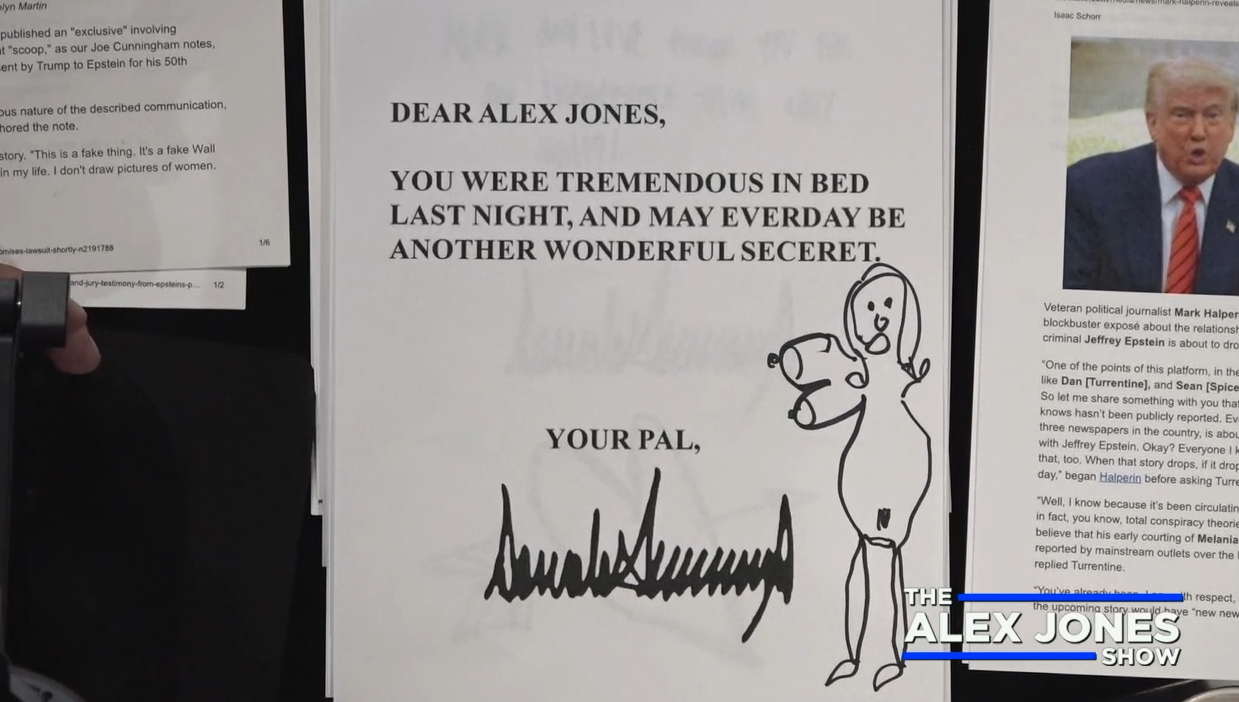 elyn Martin
published an "exclusive" involving
"scoop," as our Joe Cunningham notes,
ent by Trump to Epstein for his 50th
ous nature of the described communication,
hored the note.
story. "This is a fake thing. It's a fake Wall
in my life. I don't draw pictures of women.
omises-lawsuit-shortly-n2191788
1/6
and-jury-testimony-from-epsteins-p...
1/2
DEAR ALEX JONES,
YOU WERE TREMENDOUS IN BED
LAST NIGHT, AND MAY EVERDAY BE
ANOTHER WONDERFUL SECERET.
YOUR PAL,
Isaac Schorr
Veteran political journalist Mark Halper
blockbuster exposé about the relationsh
criminal Jeffrey Epstein is about to dro
"One of the points of this platform, in the
like Dan [Turrentine], and Sean [Spice
So let me share something with you that
knows hasn't been publicly reported. Ev
three newspapers in the country, is abou
with Jeffrey Epstein. Okay? Everyone I k
that, too. When that story drops, if it drop
day," began Halperin before asking Turre
"Well, I know because it's been circulatin
in fact, you know, total conspiracy theorie
believe that his early courting of Melania
reported by mainstream outlets over the
replied Turrentine.
"You've already with respect,
the upcoming story would have "new new
THE
ALEX JONES
SHOW